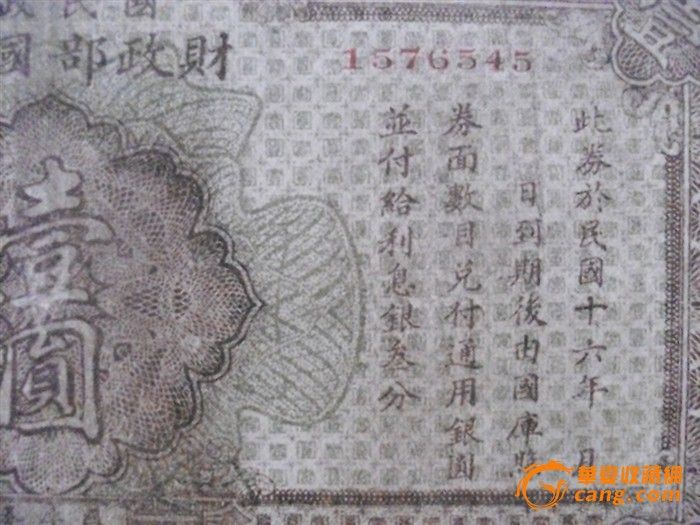 財政部國
1576545
壹
此券於民國十六年 月
日到期後由國庫照
券面數目兌付通用銀圓
並付給利息銀叁分
壹圓
華夏收藏網
cang.com